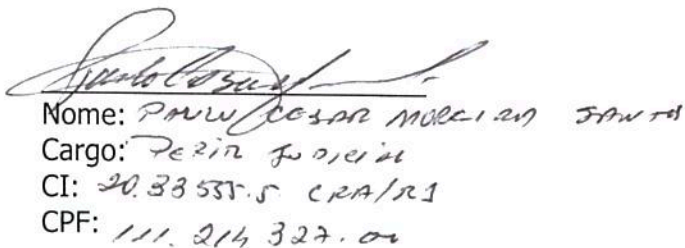 Nome: PAULO CESAR MOREIRA SANTOS
Cargo: PERITO JUDICIAL
CI: 20.33555.5 CRA/RJ
CPF: 111.214.327.00